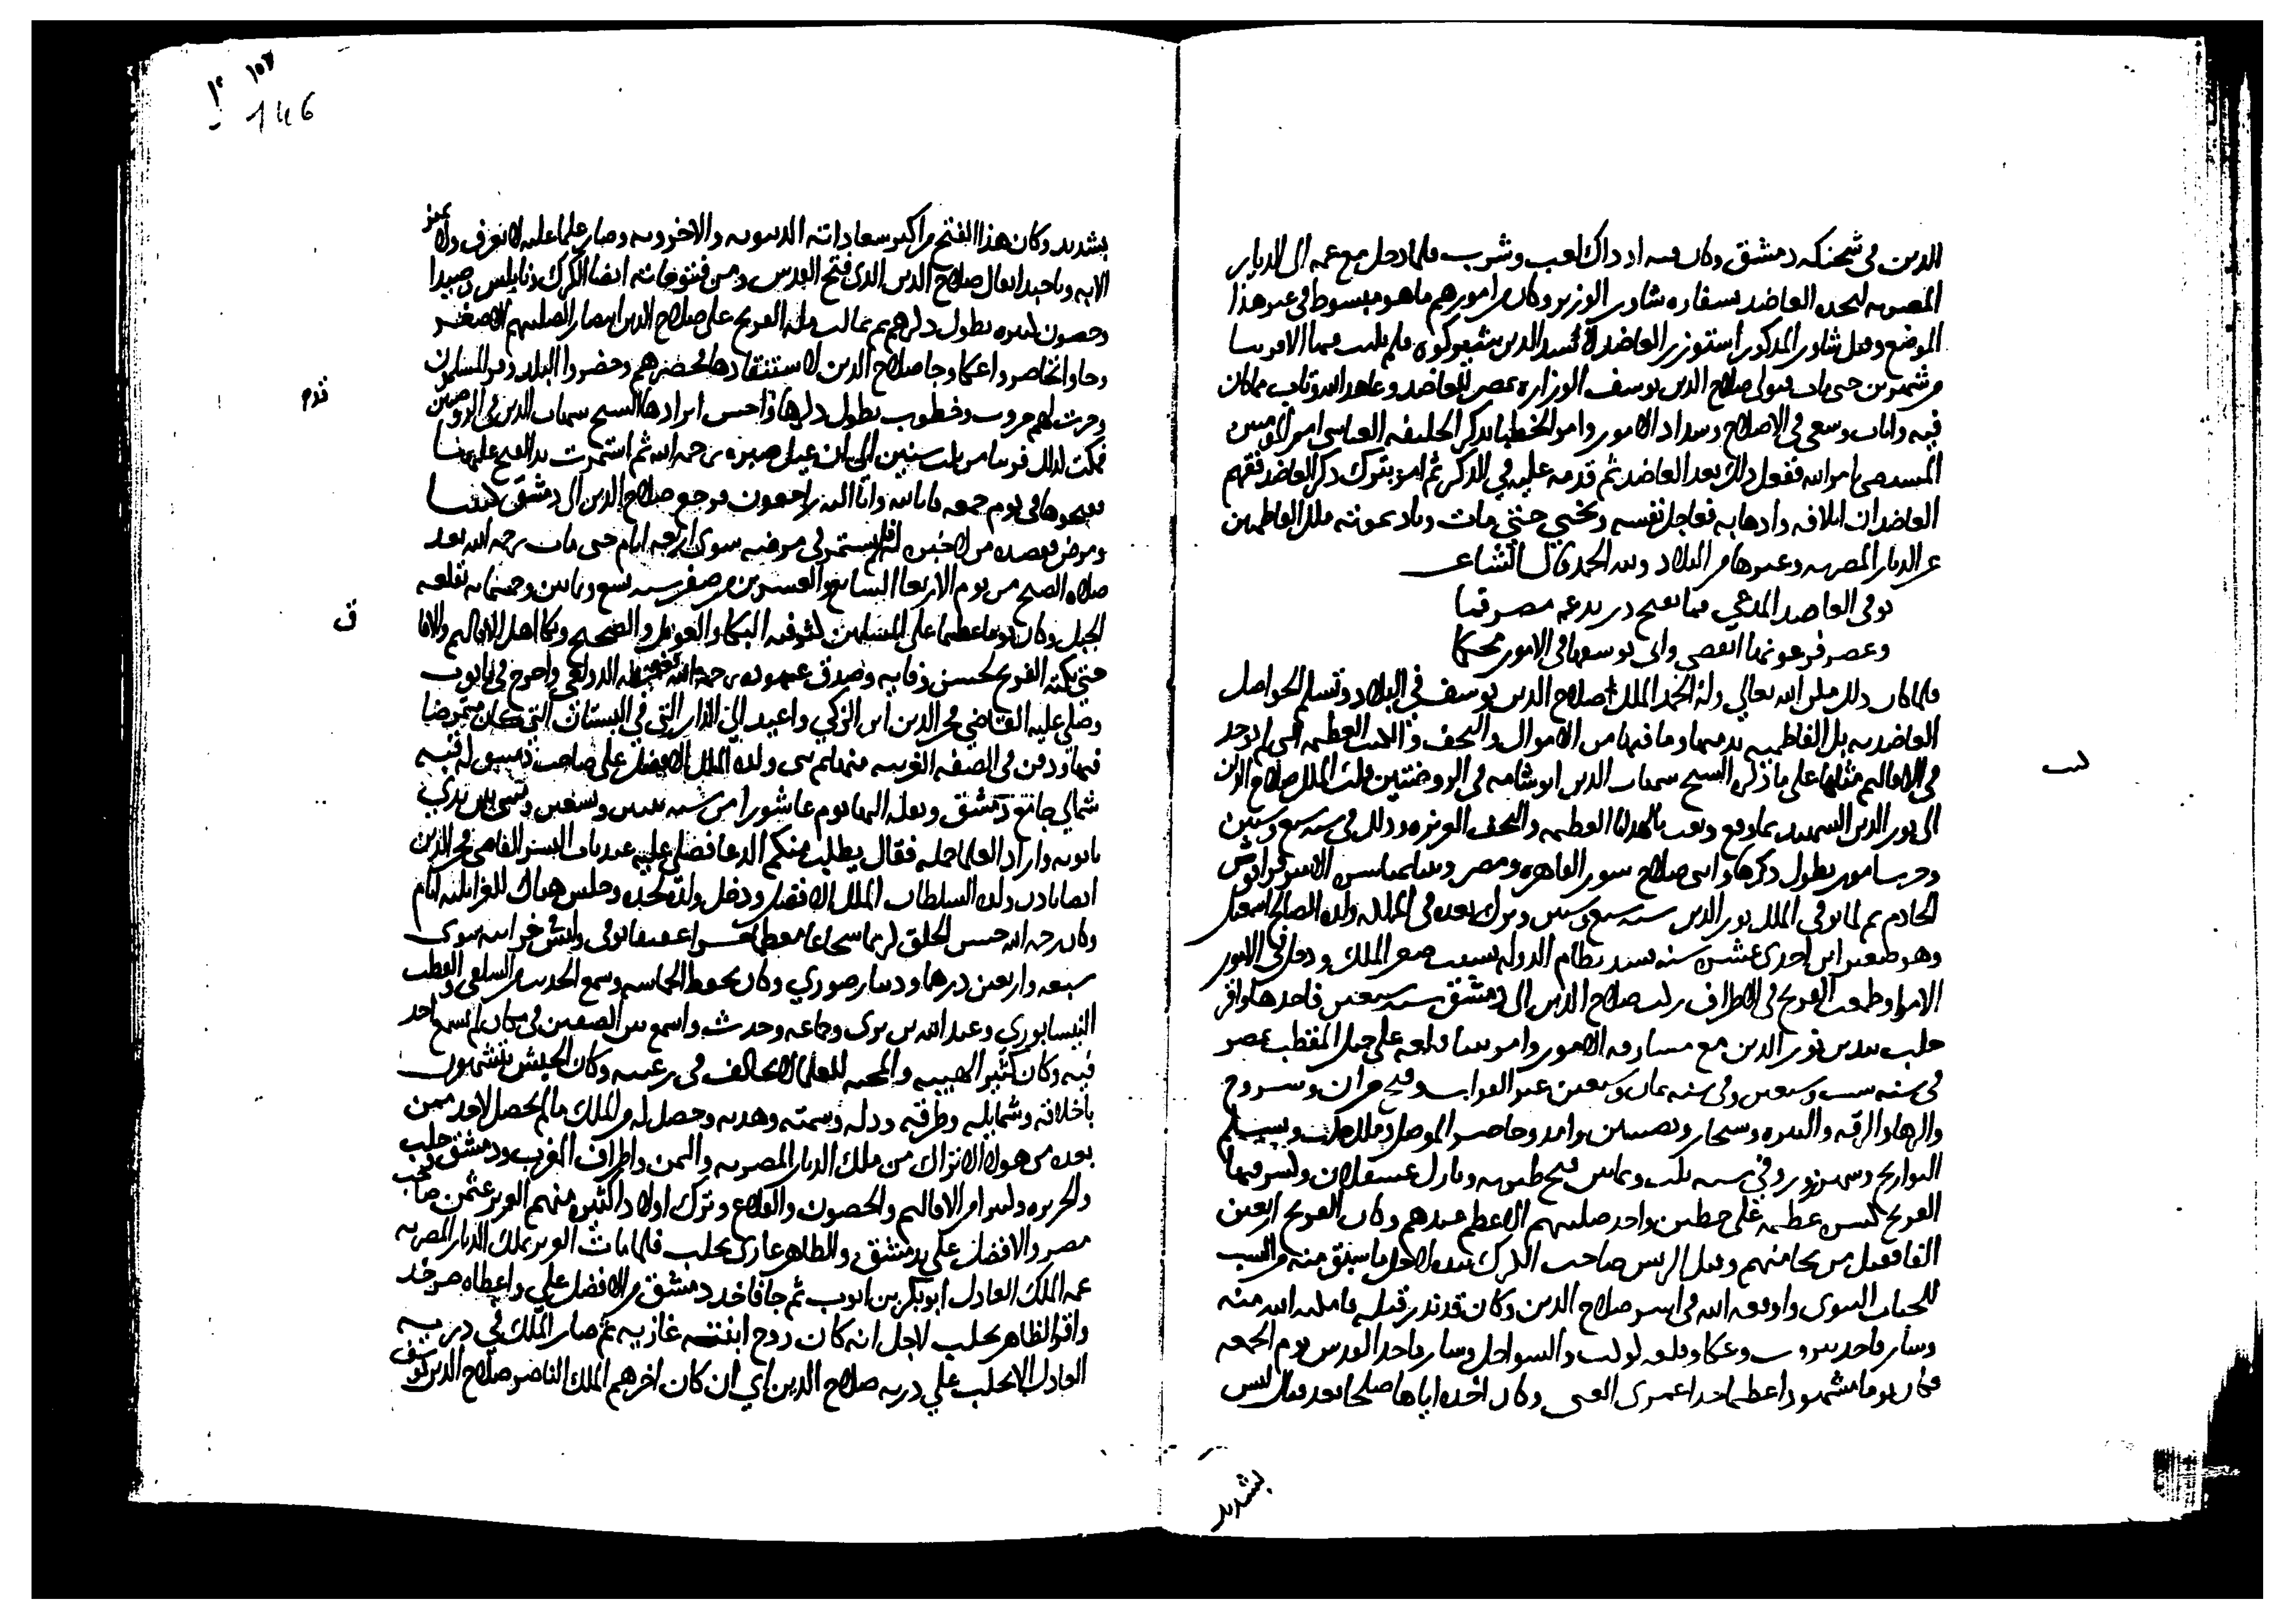 الدين في شحنكيه دمشق وكان فيه اذ ذاك لعب وشرب فلما دخل مع عمه الى الديار
المصريه لنجده العاضد بسفاره شاور الوزير وكان من امورهم ما هو مبسوط في غير هذا
الموضع وقتل شاور المذكور استوزر العاضد لاسد الدين شيركوه فلم يلبث فيها الا قريبا
من شهرين حتى مات فتولى صلاح الدين يوسف الوزاره بمصر للعاضد وعاهد الله وتاب مما كان
فيه واناب وسعى في الاصلاح وسداد الامور وامر الخطبا بذكر الخليفه العباسي امير المومنين
المستضي بامر الله ففعل ذلك بعد العاضد ثم قدمه عليه في الذكر ثم امر بترك ذكر العاضد ففهم
العاضد ان اتلافه وادهابه فعاجل نفسه وتخبى حتى مات وباد بموته ملك الفاطميين
عن الديار المصريه وغيرها من البلاد ولله الحمد قال الشاعر
توفي العاضد الدعي فما يفتح ذر بدعه بمصر فما
وعصر فرعونها انقضى واتى يوسفها في الامور محتكما
فلما كان ذلك ملك الله تعالى وله الحمد الملك صلاح الدين يوسف في البلاد وتسلم الحواصل
العاضديه بل الفاطميه بديها وما فيها من الاموال والتحف والكتب العظيمه التي لم يوجد
في الاقاليم مثلها على ما ذكره الشيخ شهاب الدين ابو شامه في الروضتين فكتب الملك صلاح الدين
الى نور الدين الشهيد بما وقع وبعث بالهدايا العظيمه والتحف الغزيره وذلك في سنه سبع وستين
وجرت امور يطول ذكرها وابتنى صلاح سور القاهره ومصر وسلمها الامير قراقوش
الخادم ثم لما توفي الملك نور الدين سنه تسع وستين وترك بعده في المملكه ولده الصالح اسمعيل
وهو صغير ابن احدى عشره سنه نظام الدوله بسبب صغر الملك ودخل في الامور
الامرا وطمعت الفرنج في الاطراف ركب صلاح الدين الى دمشق سنه سبعين فاخذها واقر
حلب بيد بن نور الدين مع مشارفه الامور وامر ببنا قلعه على جبل المقطم بمصر
في سنه ست وسبعين وفي سنه ثمان وسبعين عبر الفرات وفتح حران وسروج
والرها والرقه والبيره وسنجار ونصيبين وامد وحاصر الموصل وملك حلب وتسلم
البوازيج وشهرزور وفي سنه ثلث وثمانين فتح طبريه ونازل عسقلان وكسر فيها
الفرنج كسره عظيمه على حطين واخذ صليبهم الاعظم عندهم وكان الفرنج اربعين
الفا فقتل من نجا منهم وقتل البرنس صاحب الكرك بيده لاجل ما سبق منه من السب
للجناب النبوي واوقعه الله في اسر صلاح الدين وكان قد نذر قتله فامكنه الله منه
وسار فاخذ بيروت وعكا وقلعه كوكب والسواحل وسار فاخذ القدس يوم الجمعه
فكان يوما مشهودا عظيما وكان اخذه اياها صلحا بعد قتال ليس
بشديد
146
بشديد وكان هذا الفتح من اكبر سعاداته الدنيويه والاخرويه وصار علما عليه لا يعرف ولا يميز
الا به وما حبذا يقال صلاح الدين الذي فتح القدس ومن فتوحاته ايضا الكرك ونابلس وصيدا
وحصون كثيره يطول ذكرهم ثم تمالت مله الفرنج على صلاح الدين انصار الصليبهم الاصغر
وجاوا فحاصروا عكا وجا صلاح الدين لاستنقاذها فحصرهم وحضروا البلد دون المسلمون
وجرت لهم حروب وخطوب يطول ذكرها واحسن ايرادها الشيخ شهاب الدين في الروضتين
فمكث كذلك قريبا من ثلث سنين الى ان عيل صبره رحمه الله ثم استمرت يد الفرنج عليها
ففتحوها في يوم جمعه فانا لله وانا اليه راجعون فرجع صلاح الدين الى دمشق كئيبا
ومرض فلم يستمر في مرضه سوى اربعه ايام حتى مات رحمه الله بعد
صلاه الصبح من يوم الاربعا السابع والعشرين من صفر سنه تسع وثمانين وخمسمايه بقلعه
الجبل وكان يوما عظيما على المسلمين كثر فيه البكا والعويل والضجيج وبكا اهل الاقاليم والافا
حتى بكته الفرنج لحسن وفايه وصدق عهوده رحمه الله تعالى الدولعي واخرج في تابوت
وصلى عليه القاضي محي الدين ابن الزكي واعيد الى الدار التي في البستان التي كان متمرضا
فيها ودفن في الصفه الغربيه منها ثم بنى ولده الملك الافضل علي صاحب دمشق له قبه
شمالي جامع دمشق ونقله اليها يوم عاشورا من سنه ثنتين وتسعين ومشى بين يدي
تابوته واراد العلما حمله فقال يطلب منكم الدعا فصلى عليه عند باب النسر القاضي محي الدين
ايضا باذن ولده السلطان الملك الافضل ودخل ولده لحده وجلس هناك للعزا ثلاثه ايام
وكان رحمه الله حسن الخلق كريما شجاعا معظما للشرع عفيفا توفي وليس في خزانته سوى
سبعه واربعين درهما ودينار صوري وكان يحفظ الحماسه وسمع الحديث من السلفي والقطب
النيسابوري وعبد الله بن بري وجماعه وحدث واسمع بين الصفين في مكان لم يسمع احد
فيه وكان كثير الهيبه والمحبه للعلما لا يحالف في رغبه وكان الجيش يتشبهون
باخلاقه وشمايله وطرقه ودله وسمته وهديه وحصل له من الملك ما لم يحصل لاحد ممن
بعده من هولا الاتراك من ملك الديار المصريه واليمن واطراف المغرب ودمشق وحلب
والجزيره وكثير من الاقاليم والحصون والقلاع وترك اولادا كثيره منهم العزيز عثمن صاحب
مصر والافضل علي بدمشق والظاهر غازي بحلب فلما مات العزيز ملك الديار المصريه
عمه الملك العادل ابو بكر بن ايوب ثم جا فاخذ دمشق من الافضل علي واعطاه صرخد
واقر الظاهر بحلب لاجل انه كان زوج ابنته غازيه ثم صار الملك في ذريه
العادل الا بحلب على ذريه صلاح الدين اي ان كان اخرهم الملك الناصر صلاح الدين يوسف